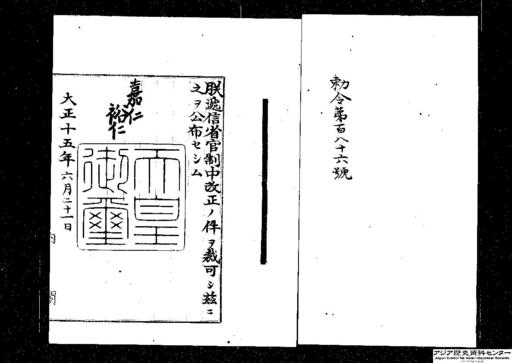 勅令第百八十六號
朕遞信省官制中改正ノ件ヲ裁可シ茲ニ
之ヲ公布セシム
嘉仁
裕仁
天皇
御璽
大正十五年六月二十一日
内閣
アジア歴史資料センター
Japan Center for Asian Historical Records